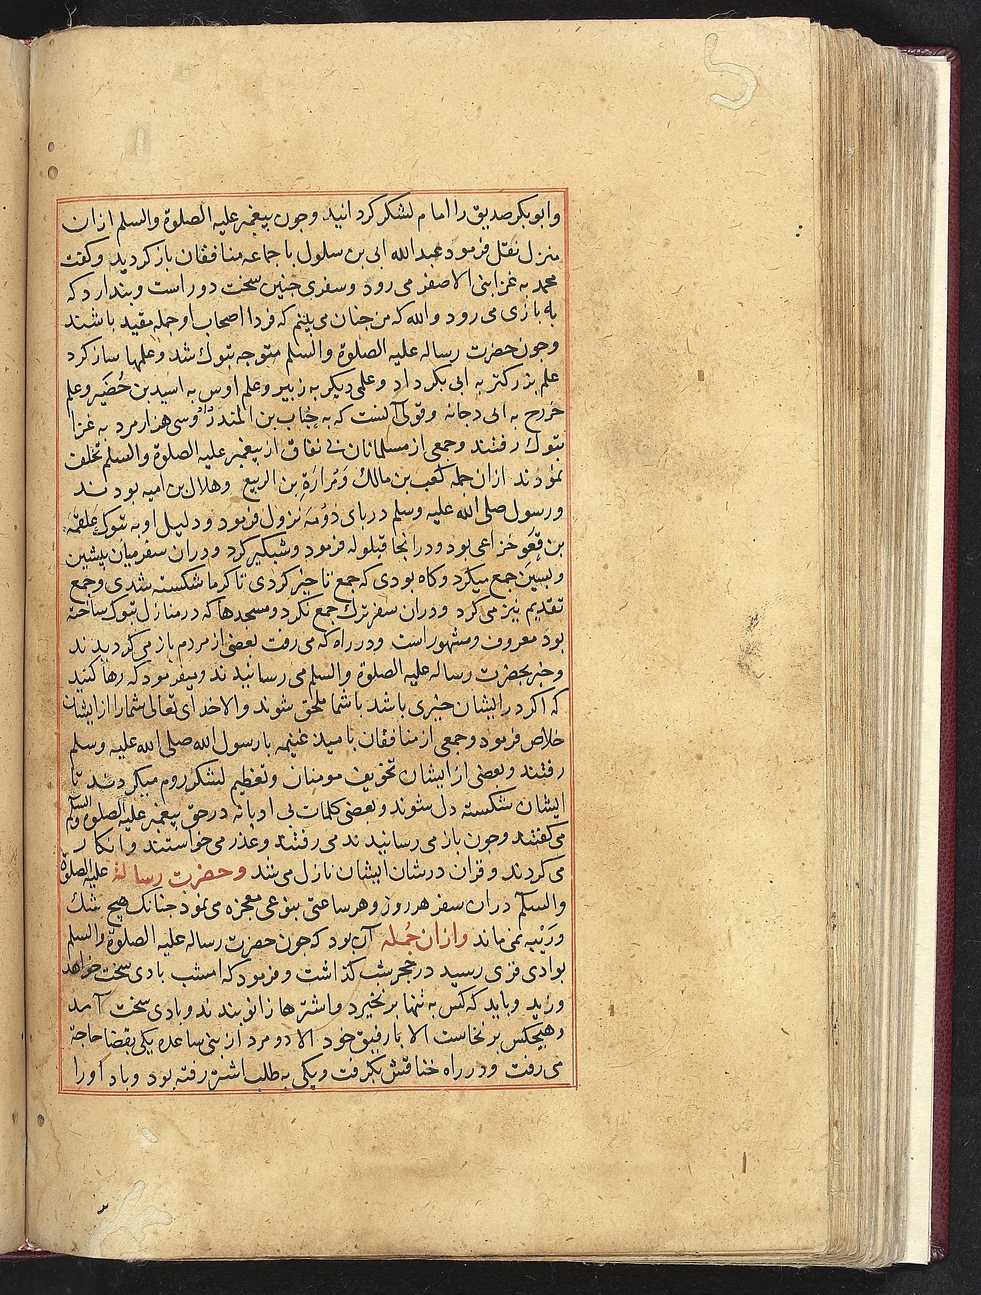 وابوبکر صدیق را امام لشکر کردانید وچون پیغمبر علیه الصلوة والسلم ازان
منزل نقل فرمود عبدالله ابی بن سلول با جماعه منافقان بازکردید وکفت
محمد به غزا بنی الاصفر می رود وسفری چنین سخت دور است وپندارد که
به بازی می رود والله که من چنان می بینم که فردا اصحاب او جمله مقید باشند
وچون حضرت رساله علیه الصلوة والسلم متوجه تبوک شد وعلمها ساز کرد
علم بزرکتر به ابی بکر داد وعلمی دیکر به زبیر وعلم اوس به اسید بن حُضَیر وعلم
خزرج به ابی دجانه وقولی آنست که به حُباب بن المنذر داد وسی هزار مرد به غزا
تبوک رفتند وجمعی از مسلمانان بی نفاق از پیغمبر علیه الصلوة والسلم تخلف
نمودند ازان جمله کعب بن مالک ومُرارَة بن الربیع وهلال بن امیه بودند
ورسول صلی الله علیه وسلم در پای دَومَه نزول فرمود ودلیل او به تبوک علقمه
بن فَغو خزاعی بود ودرانجا قیلوله فرمود وشبکیر کرد ودران سفر میان پیشین
وپسین جمع میکرد وکاه بودی که جمع تاخیر کردی تا کرما شکسته شدی وجمع
تقدیم نیز می کرد ودران سفر ترک جمع نکرد ومسجدها که در منازل تبوک ساخته
بود معروف ومشهور است ودر راه که می رفت بعضی از مردم باز می کردیدند
وخبر بحضرت رساله علیه الصلوة والسلم می رسانیدند ومیفرمود که رها کنید
که اکر درایشان خیری باشد باشما ملحق شوند والا خدای تعالی شمارا ازایشان
خلاص فرمود وجمعی از منافقان بامید غنیمه با رسول الله صلی الله علیه وسلم
رفتند وبعضی ازایشان تخویف مومنان وتعظیم لشکر روم میکردند تا
ایشان شکسته دل شوند وبعضی کلمات بی ادبانه درحق پیغمبر علیه الصلوة والسلم
می کفتند وچون باز می رسانیدند می رفتند وعذر می خواستند وانکار
می کردند وقران درشان ایشان نازل می شد وحضرت رساله علیه الصلوة
والسلم دران سفر هر روز وهر ساعتی بنوعی معجزه می نمود چنانک هیچ شک
ورَیْبه نمی ماند وازان جُمله آن بود که چون حضرت رساله علیه الصلوة والسلم
بوادی قری رسید در حجر شب کذاشت وفرمود که امشب بادی سخت خواهد
وزید وباید که کس به تنها برنخیزد واشترها زانو بندند وبادی سخت آمد
وهیچکس برنخاست الا با رفیق خود الا دو مرد از بنی ساعده یکی بقضا حاجة
می رفت ودر راه خناقش بکرفت ویکی به طلب اشتر رفته بود وباد اورا